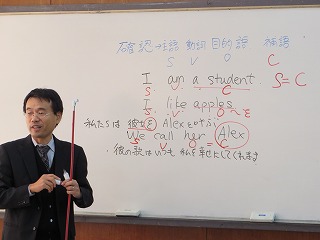 確認→主語 動詞 目的語 補語
S V O C
I am a student. S=C
S V C
I like apples.
S V O ～を
私たちは 彼女を Alexとよぶ
We call her Alex
S V O = C
・彼の歌はいつも 私を幸せにしてくれます